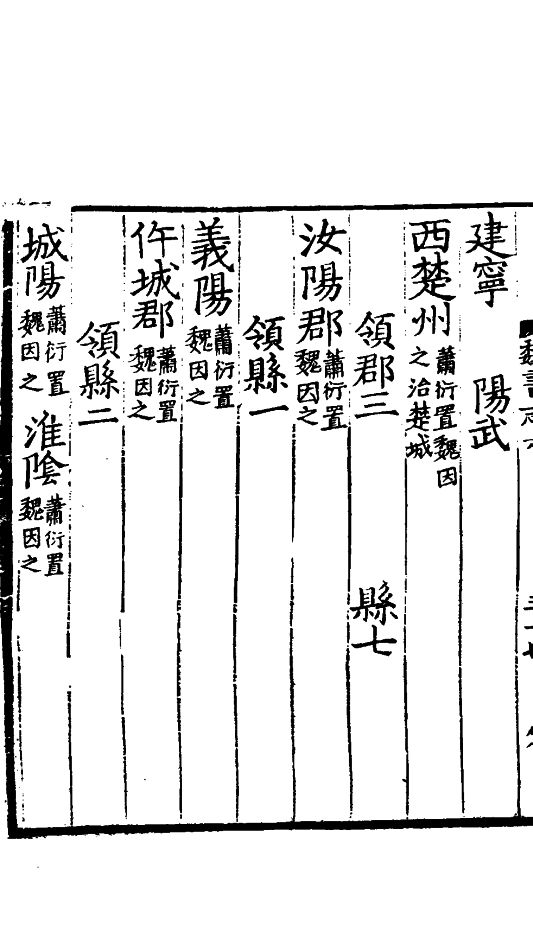 魏書志六
建寧　陽武
西楚州蕭衍置魏因之治楚城
領郡三　縣七
汝陽郡蕭衍置魏因之
領縣一
義陽蕭衍置魏因之
仵城郡蕭衍置魏因之
領縣二
城陽蕭衍置魏因之　淮陰蕭衍置魏因之